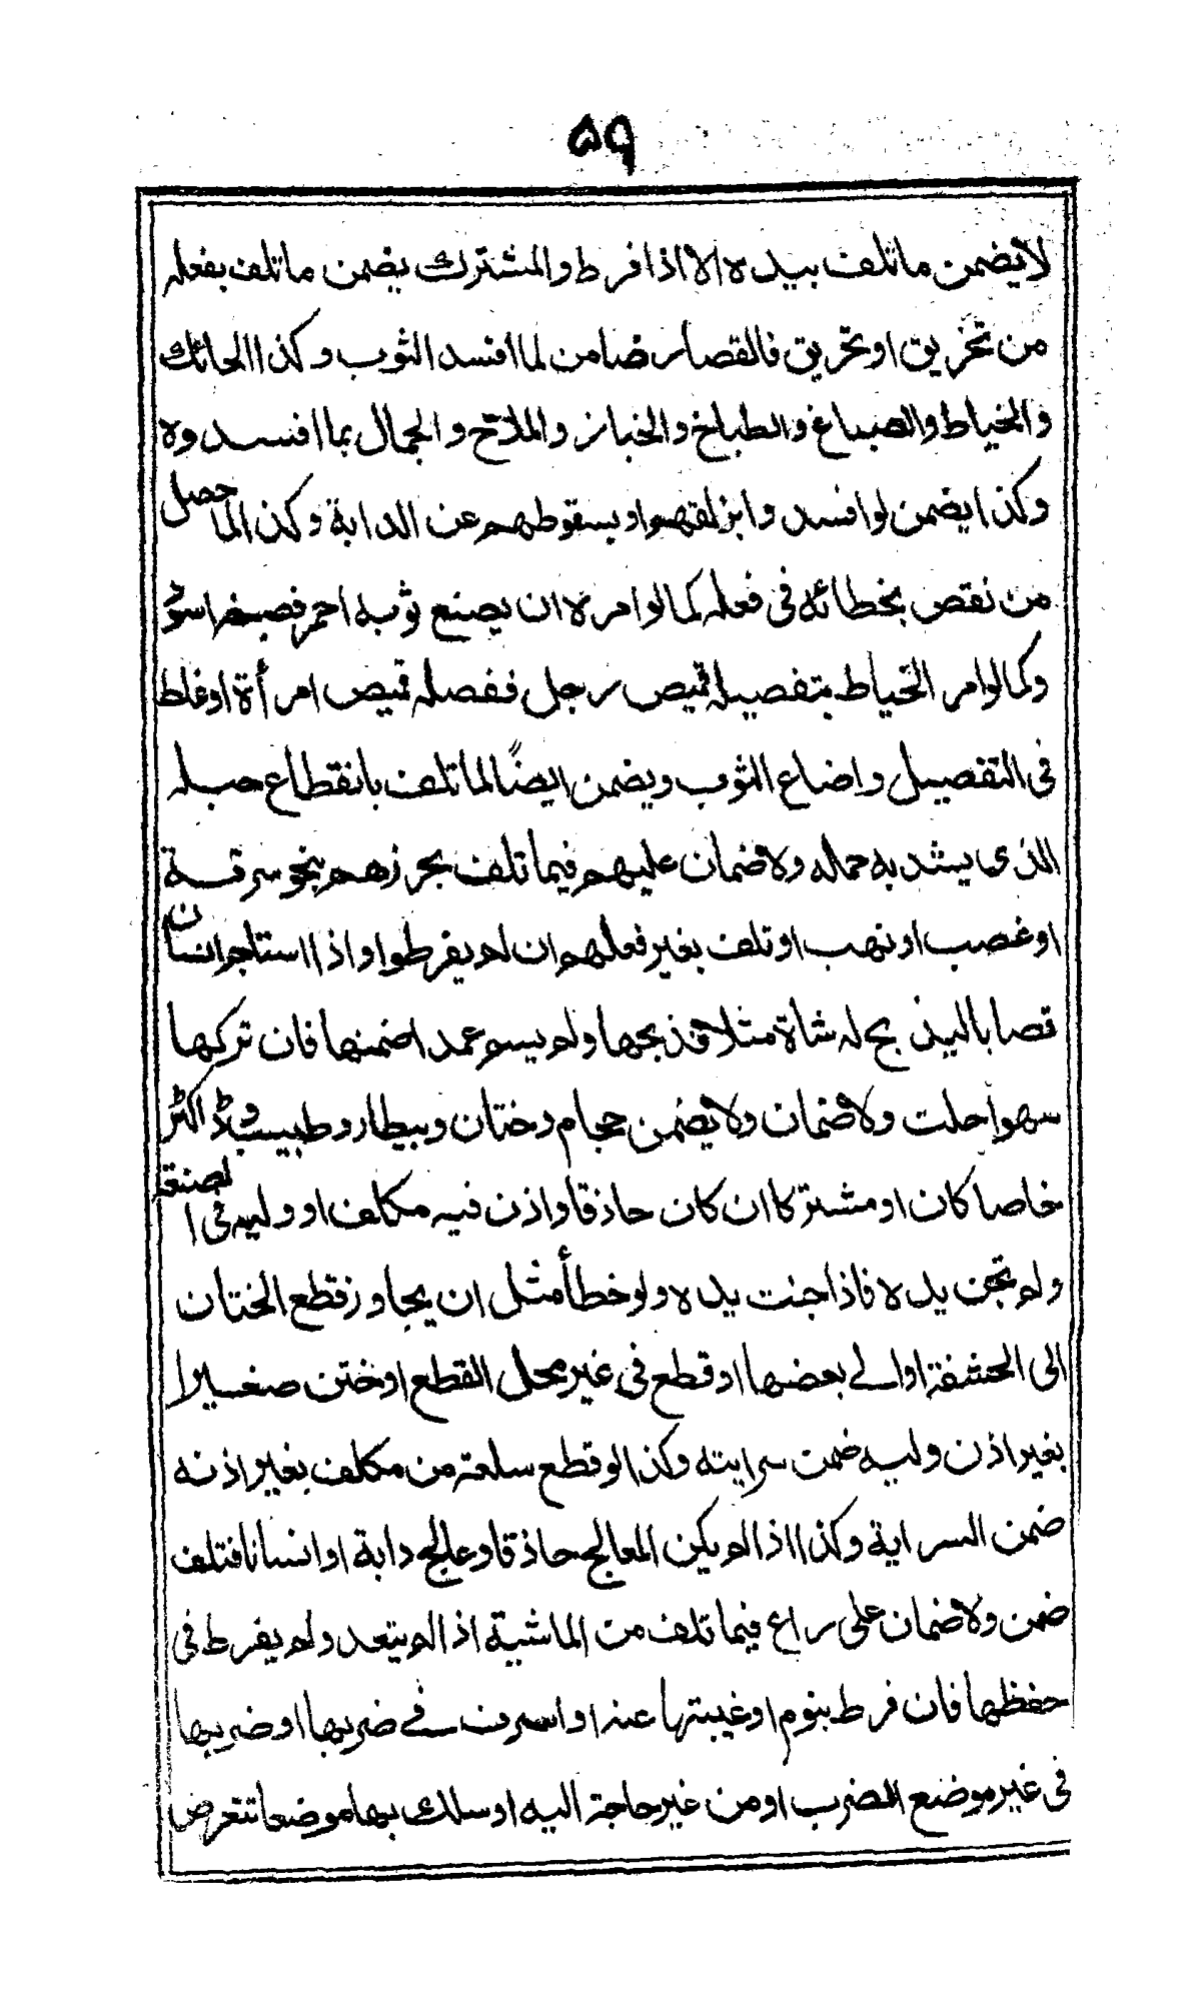 ٥٩
لا يضمن ما تلف بيده الا اذا فرط والمشترك يضمن ما تلف بفعله
من تخريق او تحريق فالقصار ضامن لما افسد الثوب وكذا الحائك
والخياط والصباغ والطباخ والخباز والملاح والجمال بما افسدوه
وكذا يضمن لو افسد وابزلقهم او بسقوطهم عن الدابة وكذا لما حصل
من نقص بخطائه فى فعله كما لو امره ان يصنع ثوبه احمر فصبغه اسود
وكما لو امر الخياط بتفصيله قميص رجل ففصله قميص امرأة او غلط
فى التفصيل واضاع الثوب ويضمن ايضًا لما تلف بانقطاع حبله
الذى يشد به حماله ولا ضمان عليهم فيما تلف بحرزهم بنحو سرقة
او غصب او نهب او تلف بغير فعلهم ان لم يفرطوا واذا استاجر انسان
قصابا ليذبح له شاة مثلا فذبحها ولم يسم عمدا ضمنها فان تركها
سهوا حلت ولا ضمان ولا يضمن حجام وختان وبيطار وطبيب وڈاكٹر
خاصا كان او مشتركا ان كان حاذقا واذن فيه مكلف او وليه فى الصنعة
ولم تجن يده فاذا جنت يده ولو خطأ مثل ان يجاوز قطع الختان
الى الحشفة او الى بعضها او قطع فى غير محل القطع او ختن صغيرا
بغير اذن وليه ضمت سرايته وكذا لو قطع سلعة من مكلف بغير اذنه
ضمن السراية وكذا اذا لم يكن المعالج حاذقا وعالج دابة او انسانا فتلف
ضمن ولا ضمان على راع فيما تلف من الماشية اذا لم يتعد ولم يفرط فى
حفظها فان فرط بنوم او غيبتها عنه او اسرف فى ضربها او ضربها
فى غير موضع الضرب او من غير حاجة اليه او سلك بها موضعا تتعرض